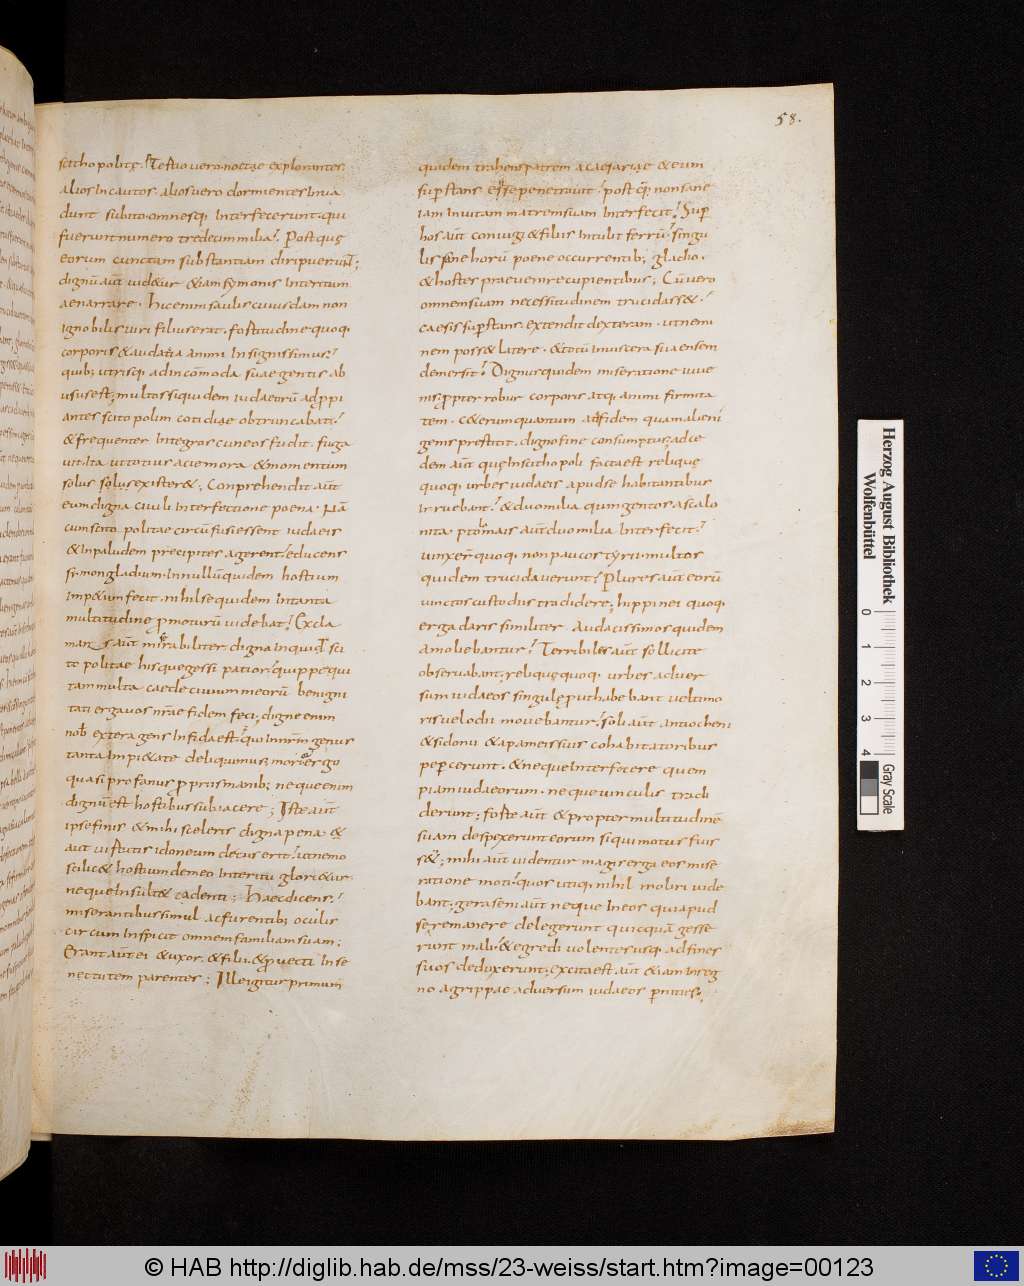 58.
scithopolitę. Testio uero noctae explorantes
alios incautos. alios uero dormientes inua
dunt subito omnesq; interfecerunt. qui
fuerunt numero tredecim milia. Post quę
eorum cunctam substantiam diripuerunt;
dignū aut uidetur etiam symonis interitum
aenarrare. hic enim saulis cuiusdam non
ignobilis uiri filius erat. fortitudine quoq;
corporis & audatia animi insignissimus.
quib; utrisq; ad incōmoda suae gentis ab
usus est; multos siquidem iudaeorū adppi
antes scitopolim cotidiae obtruncabat.
& frequenter integros cuneos fudit. fuga
uit. ita ut totius aciem ora & momentum
solus solus existeret; Conprehendit aūt
eum digna ciuili interfectione poena. Nā
cum scito politae circū fusi essent iudaeis
& in paludem precipites agerent. educens
si. non gladium. in nullū quidem hostium
impetum fecit. nihil se quidem in tanta
multitudine pmoturū uidebat. Excla
mans aūt mirabiliter. digna inquid sci
to politae his que gessi patior. quippe qui
tam multa caede ciuium meorū benigni
tati erga uos nrāe fidem feci; digne enim
nob exteragens infida est. qui in nrm genus
tanta impietate deliquimus; morier ergo
quasi profanus pprus manib; neque enim
dignū est hostibus subiacere; Iste aūt
ipse finis & mihi sceleris digna pena &
aut uirtutis idoneum decus erit. ut nemo
scilicet hostium de meo interitu glorietur.
neque insultet cadenti; Haec dicens.
miserantibus simul ac furentib; oculis
circum inspicit omnem familiam suam;
Erant aūt ei & uxor. & filii. & puecti in se
nectutem parentes; Ille igitur primum
quidem trahens patrem a caesariae & eum
supstans ense penetrauit. post q̄ non sane
iam inuitam matrem suam interfecit. Sup
hos aūt coniugi & filiis intulit ferrū. singu
lis sane horū poene occurrentib; gladio.
& hostes praeuenire cupientibus; Cū uero
omnem suam necessitudinem trucidasset.
caesis supstans. extendit dexteram. ut nemi
nem posset latere. & totū in uiscera sua ensem
demersit. Dignus quidem miseratione iuue
nis ppter robur corporis atq; animi firmita
tem. ceterum quantum ad fidem quam alieni
genis prestitit. digno fine consumptus; ad ce
dem aūt quę in scithopoli facta est reliquę
quoq; urbes iudaeis apud se habitantibus
irruebant. & duo milia quingentos ascalo
nita. ptolomais aūt duo milia interfecit.
uinxer̄ quoq; non paucos tyrii. multos
quidem trucidauerunt. Plures aūt eorū
uinctos custodiis tradidere; hippinei quoq;
et gadaris similiter. Audacissimos quidem
amoliebantur. Terribiles aūt sollicite
obseruabant; reliquę quoq; urbes aduer
sum iudaeos singulę put habebant uel timo
ris uel odii mouebantur. soli aūt antiocheni
& sidonii & apameis suis cohabitatoribus
pepercerunt. & neque interficere quem
piam iudaeorum. neque uinculis tradi
derunt; forte aūt & propter multitudinē
suam despexerunt eorum si qui motus fuis
set; mihi aūt uidentur magis erga eos mise
ratione moti. quos utiq; nihil moliri uide
bant; geraseni aūt neque in eos qui apud
se remanere delegerunt quicquā gesse
runt mali. & egredi uolentes usq; ad fines
suos deduxerunt; excita est aūt & iam in reg
no agrippae aduersum iudaeos pnities;
Herzog August Bibliothek
Wolfenbüttel
0 1 2 3 4
Gray Scale
© HAB http://diglib.hab.de/mss/23-weiss/start.htm?image=00123